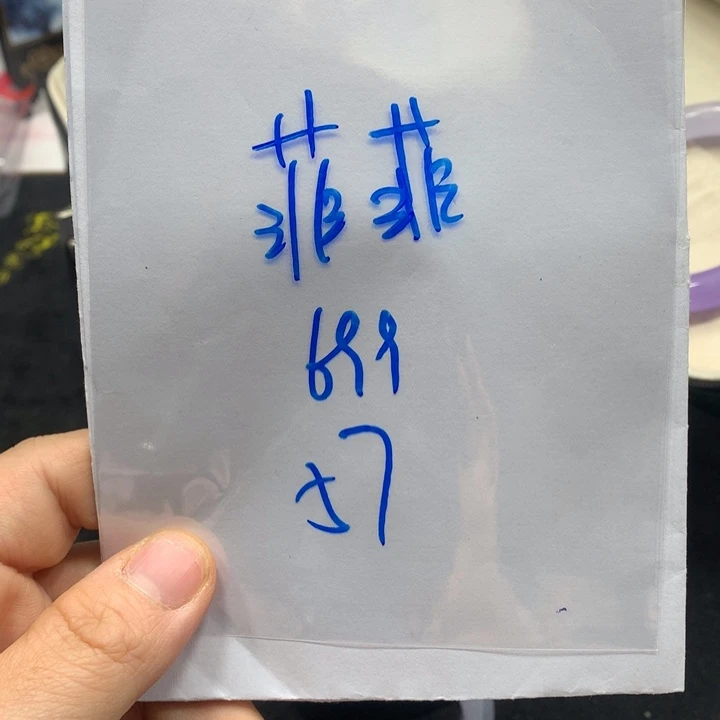 菲菲
699
57